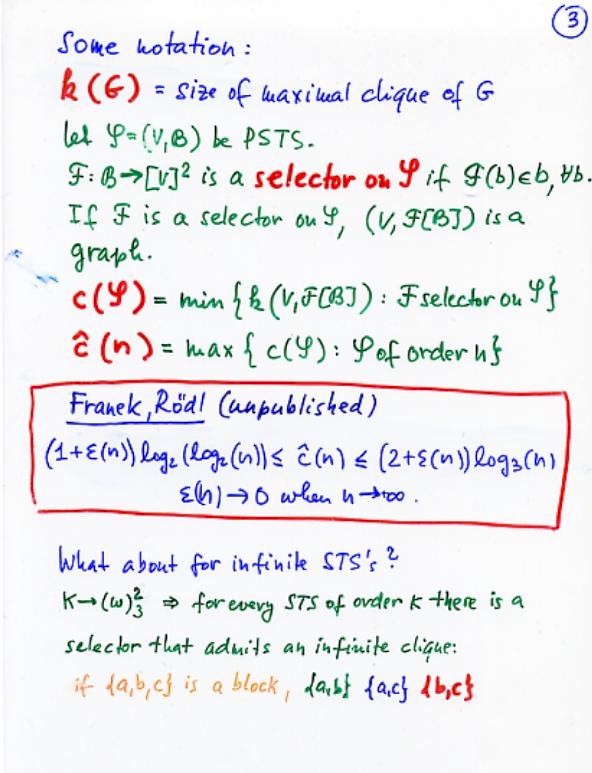 3
Some notation:
k(G) = size of maximal clique of G
let 𝒮=(V,B) be PSTS.
F: B→[V]² is a selector on 𝒮 if F(b)∈b, ∀b.
If F is a selector on 𝒮, (V, F[B]) is a
graph.
c(𝒮) = min {k(V,F[B]): F selector on 𝒮}
ĉ(n) = max { c(𝒮): 𝒮 of order n}
Franek, Rödl (unpublished)
(1+ε(n)) log₂(log₂(n)) ≤ ĉ(n) ≤ (2+ε(n)) log₃(n)
ε(n)→0 when n→∞.
What about for infinite STS's?
K→(ω)²₃ ⇒ for every STS of order K there is a
selector that admits an infinite clique:
if {a,b,c} is a block, {a,b} {a,c} {b,c}